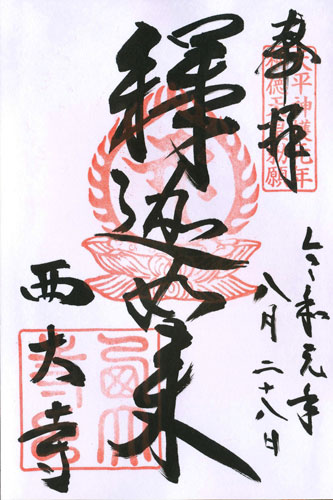 奉拝
天平神護元年
称徳天皇勅願
令和元年
八月二十八日
釋迦如来
西大寺